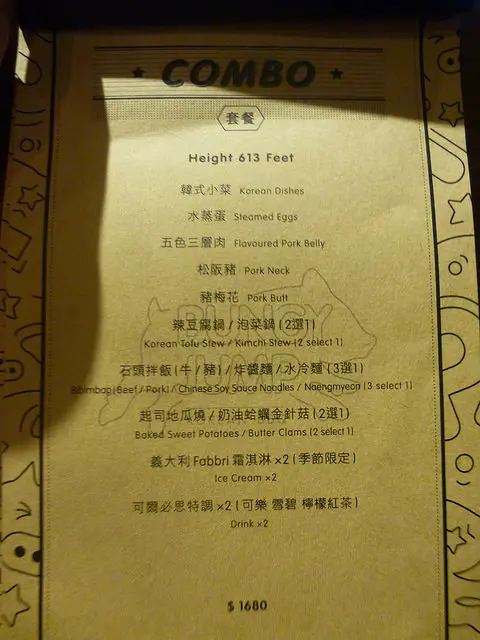 ★ COMBO ★
套餐
Height 613 Feet
韓式小菜 Korean Dishes
水蒸蛋 Steamed Eggs
五色三層肉 Flavoured Pork Belly
松阪豬 Pork Neck
豬梅花 Pork Butt
辣豆腐鍋 / 泡菜鍋 (2選1)
Korean Tofu Stew / Kimchi Stew (2 select 1)
石頭拌飯 (牛 / 豬) / 炸醬麵 / 水冷麵 (3選1)
Bibimbap(Beef / Pork) / Chinese Soy Sauce Noodles / Naengmyeon (3 select 1)
起司地瓜燒 / 奶油蛤蠣金針菇 (2選1)
Baked Sweet Potatoes / Butter Clams (2 select 1)
義大利 Fabbri 霜淇淋 ×2 ( 季節限定 )
Ice Cream ×2
可爾必思特調 ×2 ( 可樂 雪碧 檸檬紅茶 )
Drink ×2
$ 1680
BUNGY
JUMP